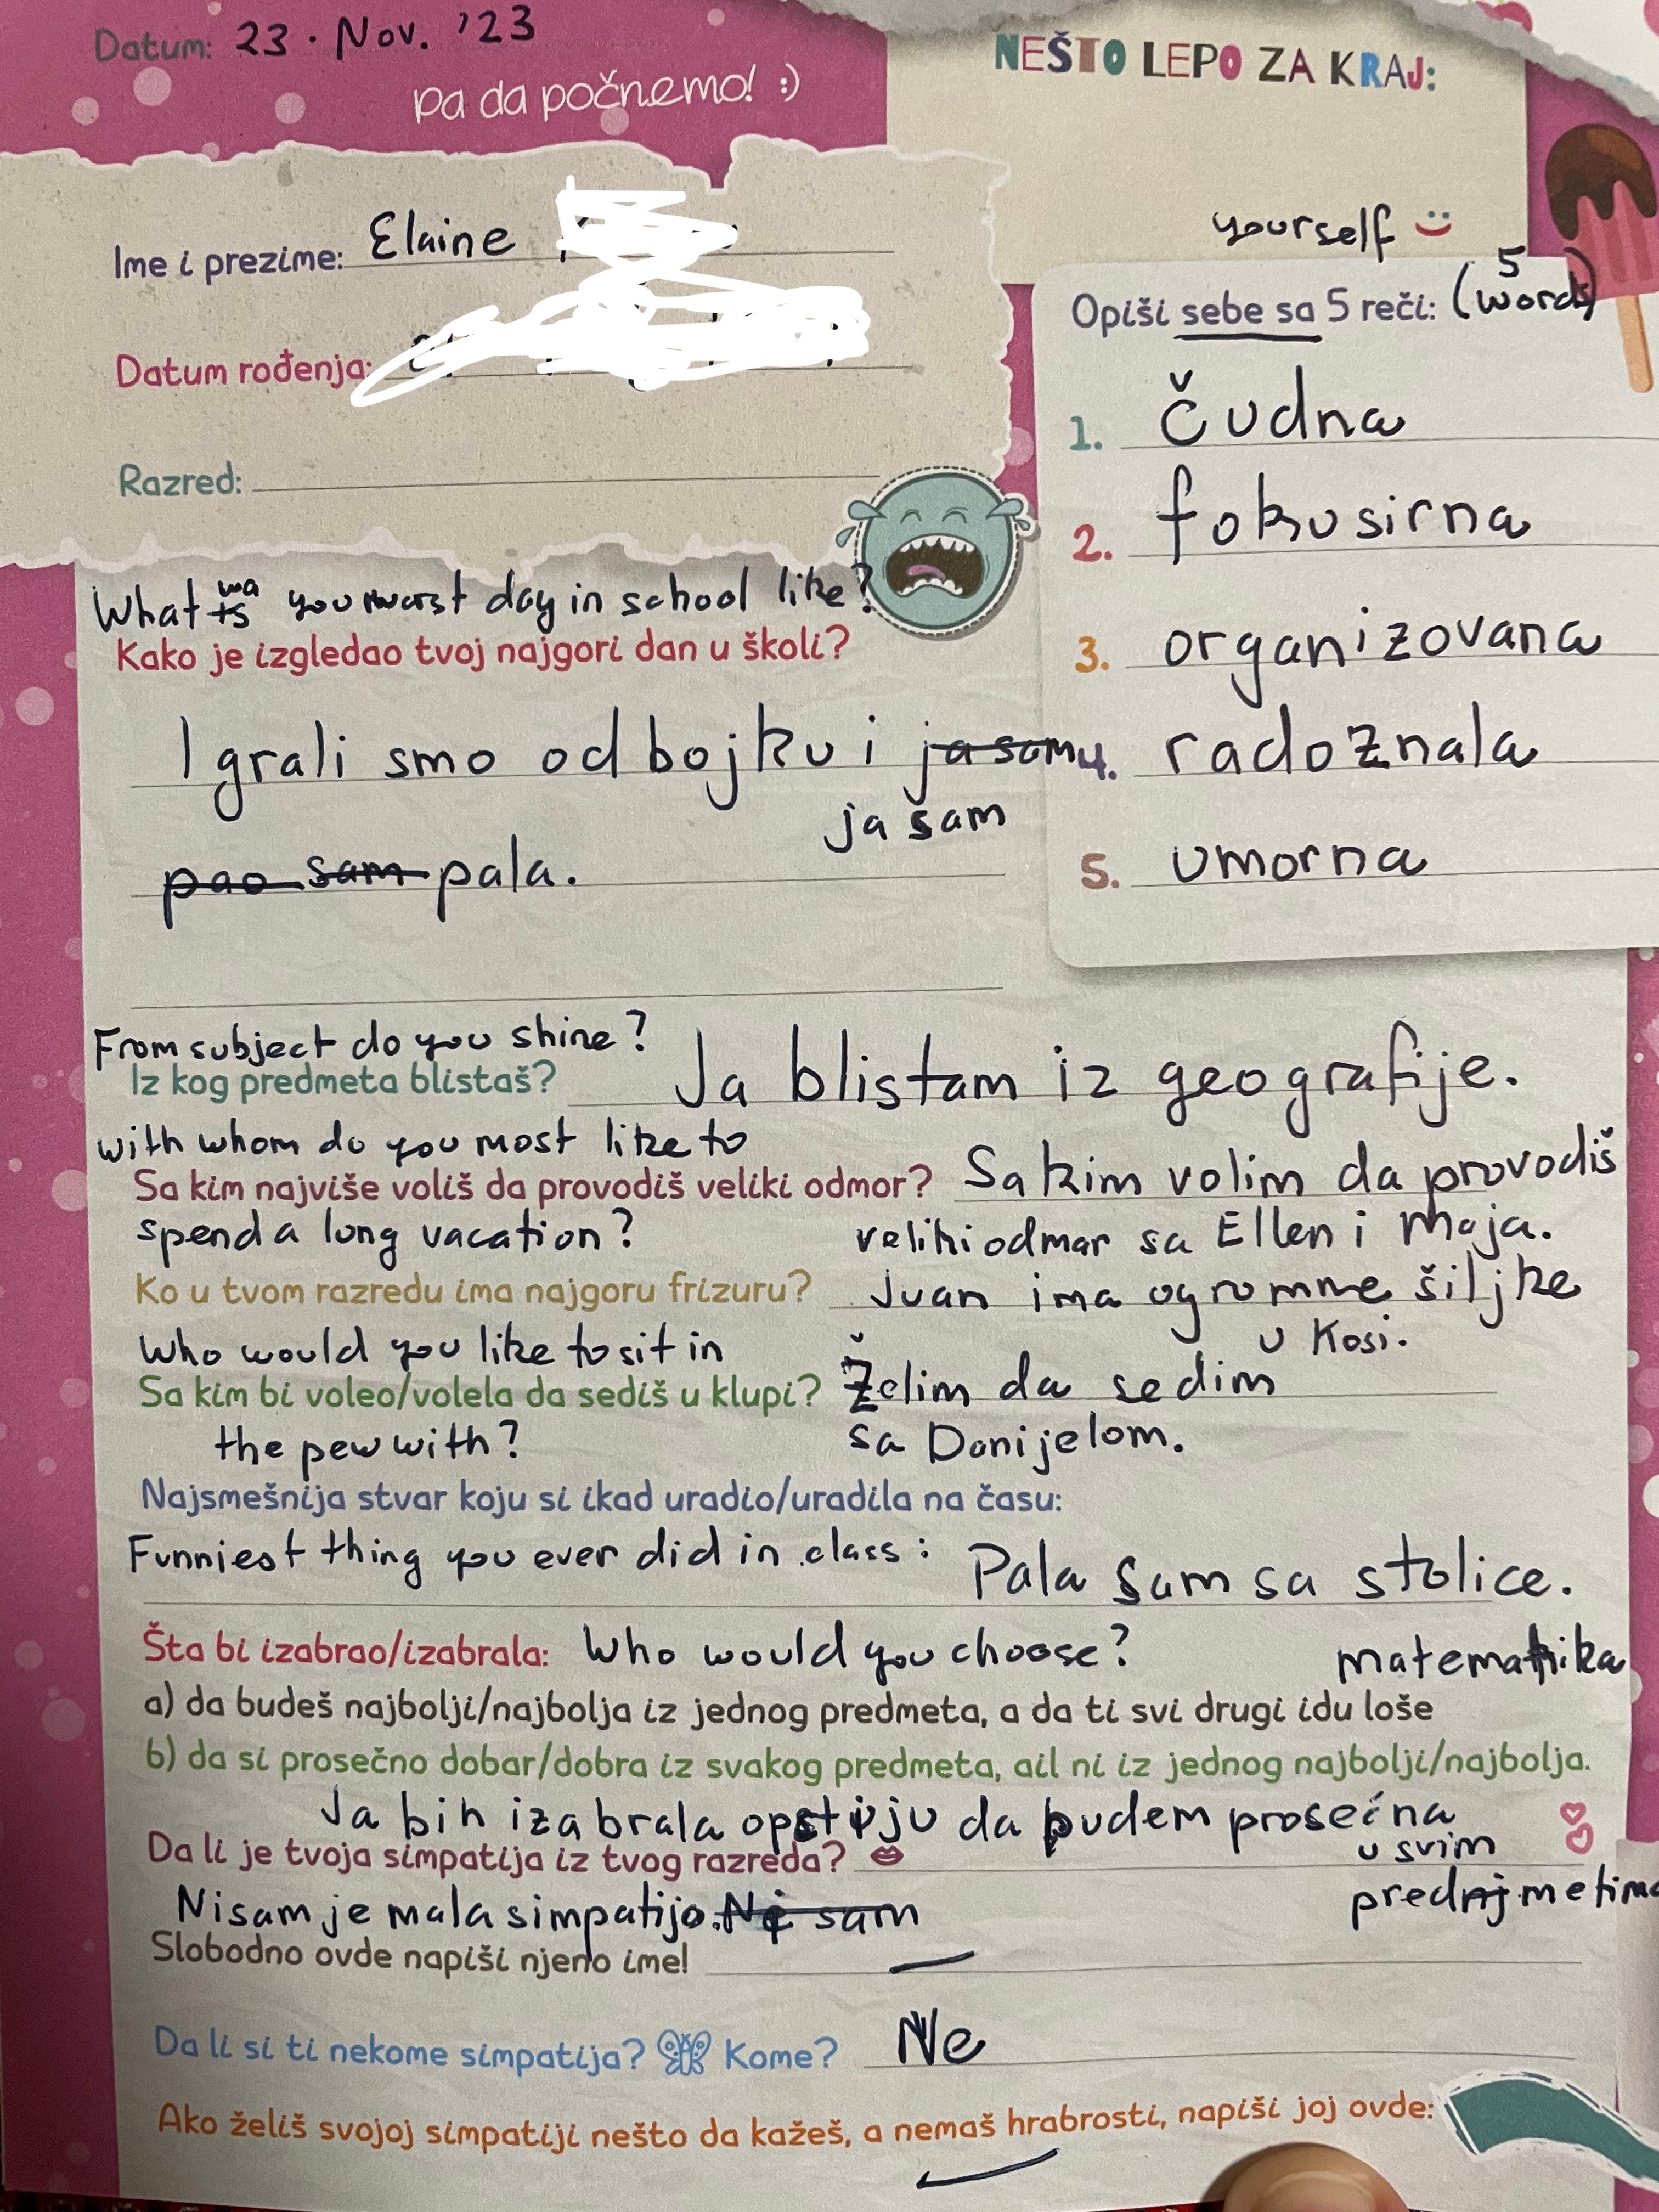 Datum: 23. Nov. '23
pa da počnemo! :)
NEŠTO LEPO ZA KRAJ:
Ime i prezime: Elaine
Datum rođenja:
Razred:
yourself
Opiši sebe sa 5 reči: (5 words)
1. čudna
2. fokusirna
3. organizovana
4. radoznala
5. umorna
What wa your worst day in school like?
Kako je izgledao tvoj najgori dan u školi?
Igrali smo odbojku i ja sam
ja sam
pao sam pala.
From subject do you shine?
Iz kog predmeta blistaš? Ja blistam iz geografije.
with whom do you most like to
Sa kim najviše voliš da provodiš veliki odmor? Sa kim volim da provodiš
spend a long vacation? veliki odmar sa Ellen i Maja.
Ko u tvom razredu ima najgoru frizuru? Juan ima ogromne šiljke
u Kosi.
Who would you like to sit in
Sa kim bi voleo/volela da sediš u klupi? Želim da sedim
the pew with? sa Danijelom.
Najsmešnija stvar koju si ikad uradio/uradila na času:
Funniest thing you ever did in class: Pala sam sa stolice.
Šta bi izabrao/izabrala: Who would you choose? matematika
a) da budeš najbolji/najbolja iz jednog predmeta, a da ti svi drugi idu loše
b) da si prosečno dobar/dobra iz svakog predmeta, ail ni iz jednog najbolji/najbolja.
Ja bih izabrala da budem prosećna
u svim
Da li je tvoja simpatija iz tvog razreda?
Nisam je mala simpatijo. Ni sam
Slobodno ovde napiši njeno ime!
Da li si ti nekome simpatija? Kome? Ne
Ako želiš svojoj simpatiji nešto da kažeš, a nemaš hrabrosti, napiši joj ovde: